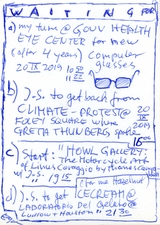 WAITING FOR
a) my turn @ GOUV HEALTH
EYE CENTER for new
(after 4 years) computer
20 IX 2019 glasses
10 00
b) J.S. to get back from
CLIMATE-PROTEST @ 20
FOLEY SQUARE where IX
GRETA THUNBERG spoke 2019
16 00
c) Start: "HOWL GALLERY:
The Motorcycle Art
of Linus Coraggio by
w/ J.S. 19 15
(for me Hazelnut)
d) J.S. to get ICECREAM @
LABORATORIO Del Gelato @
Ludlow + Houston 21 30